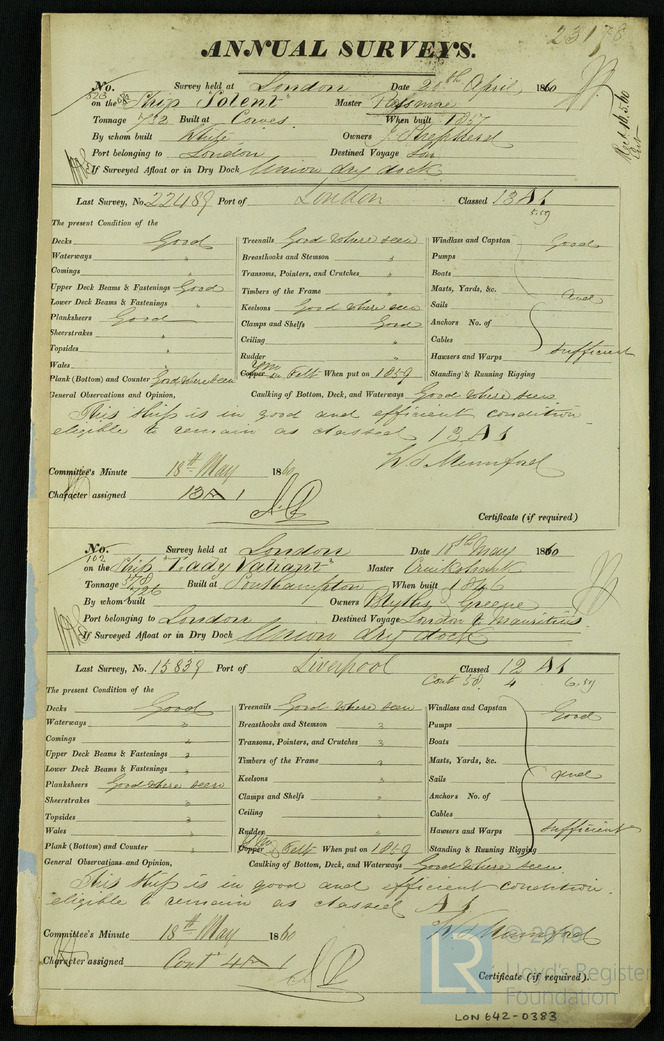 23178
ANNUAL SURVEYS.
No. 523 Survey held at London Date 20th April, 1860
on the Ship "Solent" Master
Tonnage 732 Built at Cowes When built 1857
By whom built White Owners J. Shepherd
Port belonging to London Destined Voyage
If Surveyed Afloat or in Dry Dock Union dry dock
Rect 16.5.60
Last Survey, No. 22489 Port of London Classed 13 A1
5.59
The present Condition of the
Decks Good Treenails Good where seen Windlass and Capstan Good
Waterways " Breasthooks and Stemson " Pumps
Comings " Transoms, Pointers, and Crutches " Boats
Upper Deck Beams & Fastenings Good Timbers of the Frame " Masts, Yards, &c. and
Lower Deck Beams & Fastenings " Keelsons Good where seen Sails
Planksheers Good Clamps and Shelfs Good Anchors No. of
Sheerstrakes " Ceiling " Cables
Topsides " Rudder " Hawsers and Warps sufficient
Wales " Copper YM on Felt When put on 1859 Standing & Running Rigging
Plank (Bottom) and Counter Good where seen Caulking of Bottom, Deck, and Waterways Good where seen
General Observations and Opinion,
This ship is in good and efficient condition
eligible to remain as classed 13 A1
W. S. Mumford
Committee's Minute 18th May 1860
Character assigned 13 A 1
Certificate (if required)
No. 102 Survey held at London Date 18th May 1860
on the Ship "Lady Valiant" Master Cruikshank
Tonnage 578/726 Built at Southampton When built 1846
By whom built Owners Blyths & Greene
Port belonging to London Destined Voyage London & Mauritius
If Surveyed Afloat or in Dry Dock Union dry dock
Last Survey, No. 15839 Port of Liverpool Classed 12 A1
Cont 58. 4 6.59
The present Condition of the
Decks Good Treenails Good where seen Windlass and Capstan Good
Waterways " Breasthooks and Stemson " Pumps
Comings " Transoms, Pointers, and Crutches " Boats
Upper Deck Beams & Fastenings " Timbers of the Frame " Masts, Yards, &c.
Lower Deck Beams & Fastenings " Keelsons " Sails and
Planksheers Good where seen Clamps and Shelfs " Anchors No. of
Sheerstrakes " Ceiling " Cables
Topsides " Rudder " Hawsers and Warps sufficient
Wales " Copper YM on Felt When put on 1859 Standing & Running Rigging
Plank (Bottom) and Counter " Caulking of Bottom, Deck, and Waterways Good where seen
General Observations and Opinion,
This ship is in good and efficient condition.
eligible to remain as classed A1
W. S. Mumford
Committee's Minute 18th May 1860
Character assigned Cont 4 A 1
Certificate (if required).
© 2019
LR Lloyd's Register
Foundation
LON 642-0383